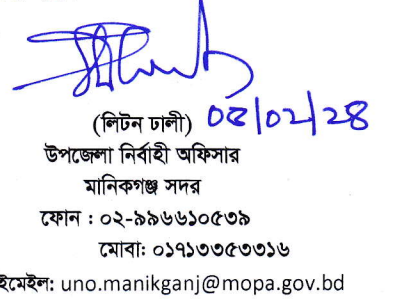 (লিটন ঢালী) ০৫|০২|২৪
উপজেলা নির্বাহী অফিসার
মানিকগঞ্জ সদর
ফোন : ০২-৯৯৬৬১০৫৩৯
মোবা: ০১৭১৩৩৫৩৩১৬
ইমেইল: uno.manikganj@mopa.gov.bd